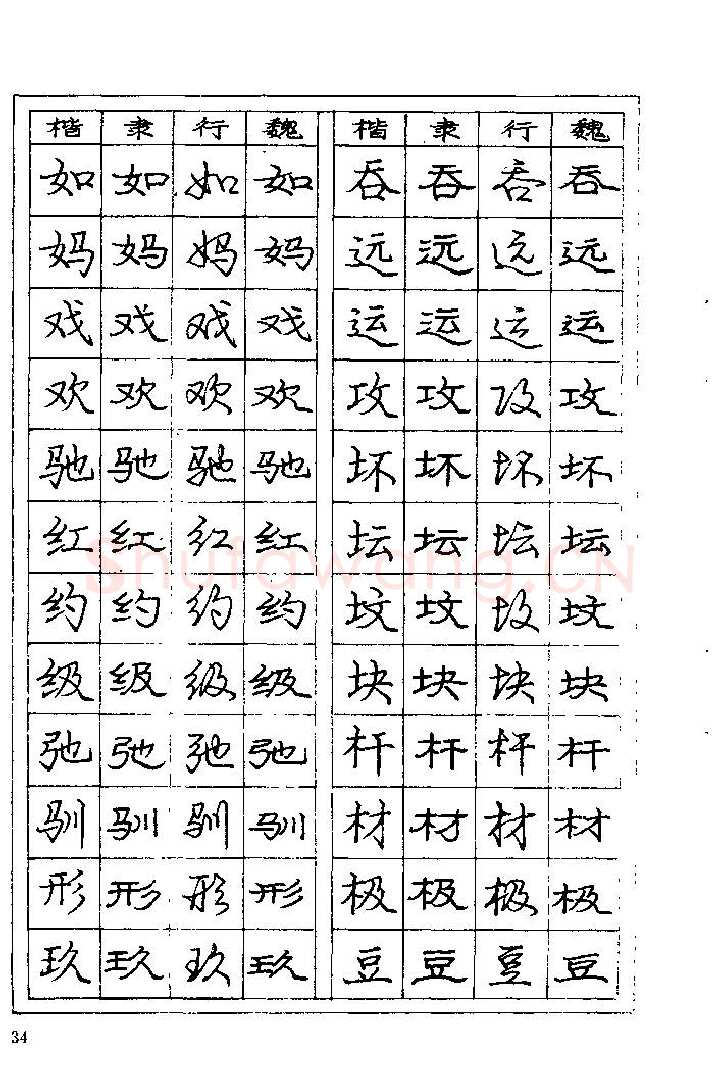 楷 隶 行 魏 楷 隶 行 魏
如 如 如 如 吞 吞 吞 吞
妈 妈 妈 妈 远 远 远 远
戏 戏 戏 戏 运 运 运 运
欢 欢 欢 欢 攻 攻 攻 攻
驰 驰 驰 驰 坏 坏 坏 坏
红 红 红 红 坛 坛 坛 坛
Shufawang.CN
约 约 约 约 坟 坟 坟 坟
级 级 级 级 块 块 块 块
弛 弛 弛 弛 杆 杆 杆 杆
驯 驯 驯 驯 材 材 材 材
形 形 形 形 极 极 极 极
玖 玖 玖 玖 豆 豆 豆 豆
34